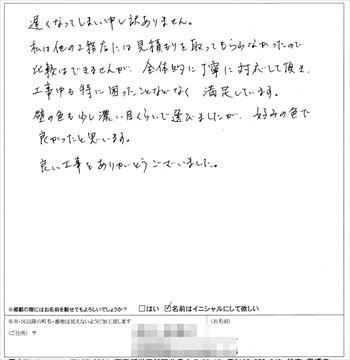 遅くなってしまい申し訳ありません。
私は他の工務店には見積もりを取ってもらわなかったので
比較はできませんが、全体的に丁寧に対応して頂き、
工事中も特に困ったことなどなく 満足しています。
壁の色も少し濃い目くらいで選びましたが、好みの色で
良かったと思います。
良い工事をありがとうございました。
※掲載の際にはお名前を載せてもよろしいでしょうか？ □はい ☑名前はイニシャルにして欲しい
※市・区以降の町名・番地は見えないように加工致します （お名前）
（ご住所） 〒